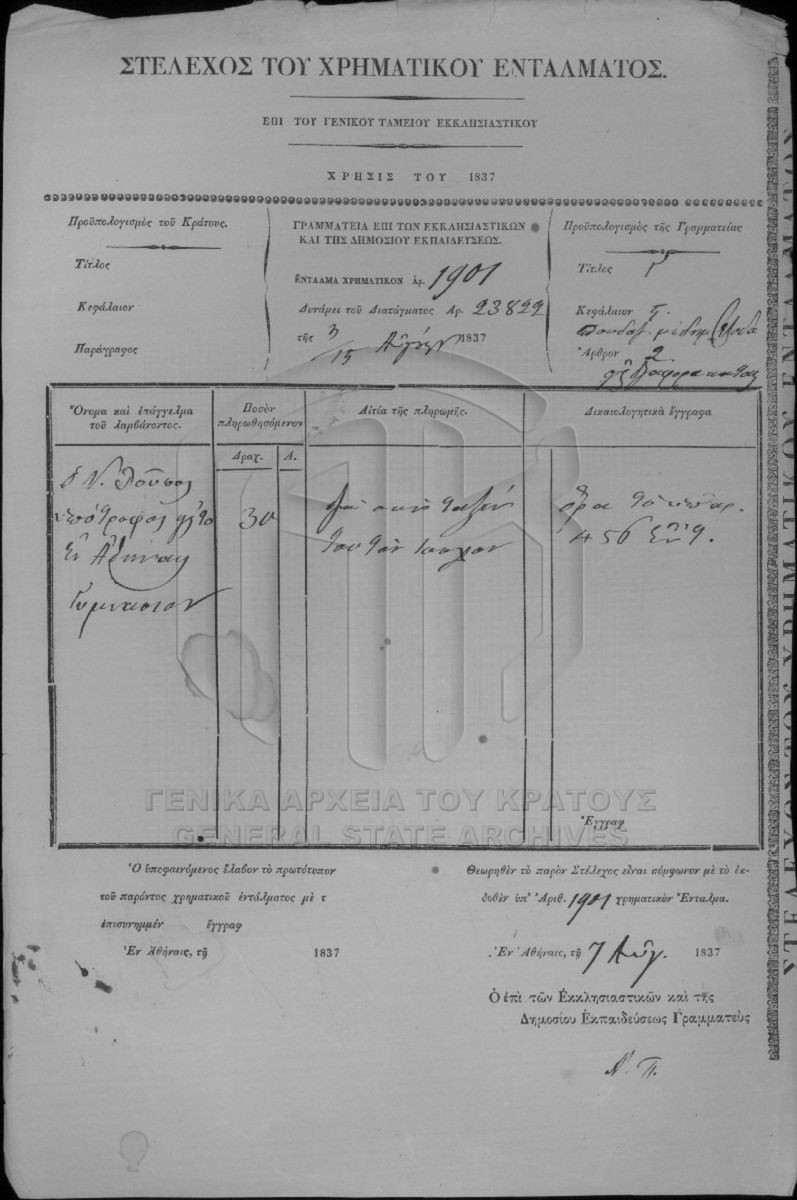 ΣΤΕΛΕΧΟΣ ΤΟΥ ΧΡΗΜΑΤΙΚΟΥ ΕΝΤΑΛΜΑΤΟΣ.
ΕΠΙ ΤΟΥ ΓΕΝΙΚΟΥ ΤΑΜΕΙΟΥ ΕΚΚΛΗΣΙΑΣΤΙΚΟΥ
ΧΡΗΣΙΣ ΤΟΥ 1837
Προϋπολογισμὸς τοῦ Κράτους.
Τίτλος
Κεφάλαιον
Παράγραφος
ΓΡΑΜΜΑΤΕΙΑ ΕΠΙ ΤΩΝ ΕΚΚΛΗΣΙΑΣΤΙΚΩΝ
ΚΑΙ ΤΗΣ ΔΗΜΟΣΙΟΥ ΕΚΠΑΙΔΕΥΣΕΩΣ.
ΕΝΤΑΛΜΑ ΧΡΗΜΑΤΙΚΟΝ ἀρ. 1901
Δυνάμει τοῦ Διατάγματος Αρ. 23829
τῆς 3/15 Αὐγούσ 1837
Προϋπολογισμὸς τῆς Γραμματείας
Τίτλος
Κεφάλαιον
Ἄρθρον 2
Ὄνομα καὶ ἐπάγγελμα
τοῦ λαμβάνοντος.
Ποσὸν
πληρωθησόμενον
Δραχ. Λ.
Αἰτία τῆς πληρωμῆς.
Δικαιολογητικὰ ἔγγραφα
ὑπότροφος
30
ἐν Ἀθήναις
Γυμνάσιον
456
Ἔγγραφ
ΓΕΝΙΚΑ ΑΡΧΕΙΑ ΤΟΥ ΚΡΑΤΟΥΣ
GENERAL STATE ARCHIVES
Ὁ ὑποφαινόμενος ἔλαβον τὸ πρωτότυπον
τοῦ παρόντος χρηματικοῦ ἐντάλματος μὲ τ
ἐπισυνημμέν ἔγγραφ
Ἐν Ἀθήναις, τῇ 1837
Θεωρηθὲν τὸ παρὸν Στέλεχος εἶναι σύμφωνον μὲ τὸ ἐκ-
δοθὲν ὑπ' Ἀριθ. 1901 χρηματικὸν Ἔνταλμα.
Ἐν Ἀθήναις, τῇ 7 Αὐγ. 1837
Ὁ ἐπὶ τῶν Ἐκκλησιαστικῶν καὶ τῆς
Δημοσίου Ἐκπαιδεύσεως Γραμματεὺς
Α. Π.
ΣΤΕΛΕΧΟΣ ΤΟΥ ΧΡΗΜΑΤΙΚΟΥ ΕΝΤΑΛΜΑΤΟΣ